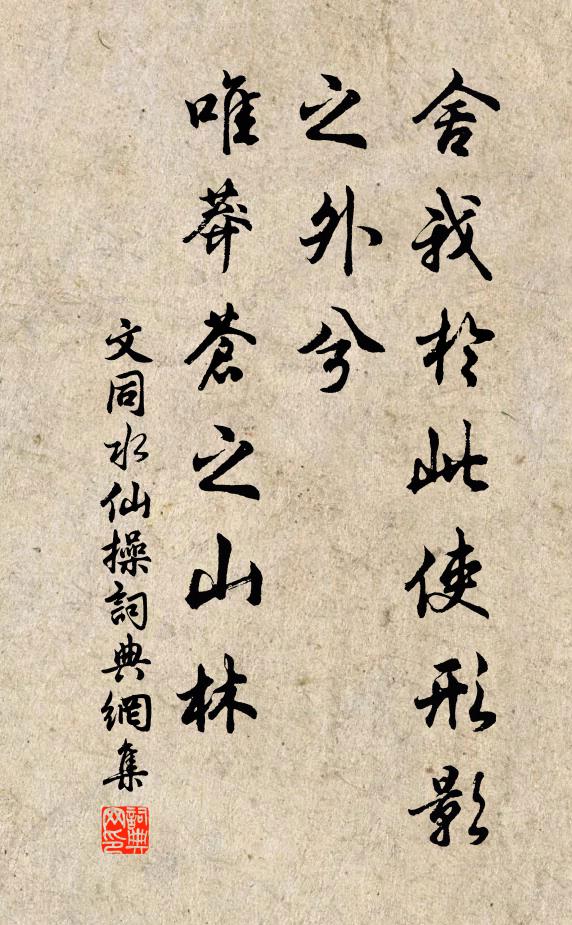 舍我於此使形影
之外兮
唯莽蒼之山林
文同水仙操詞典網集
詞典网印